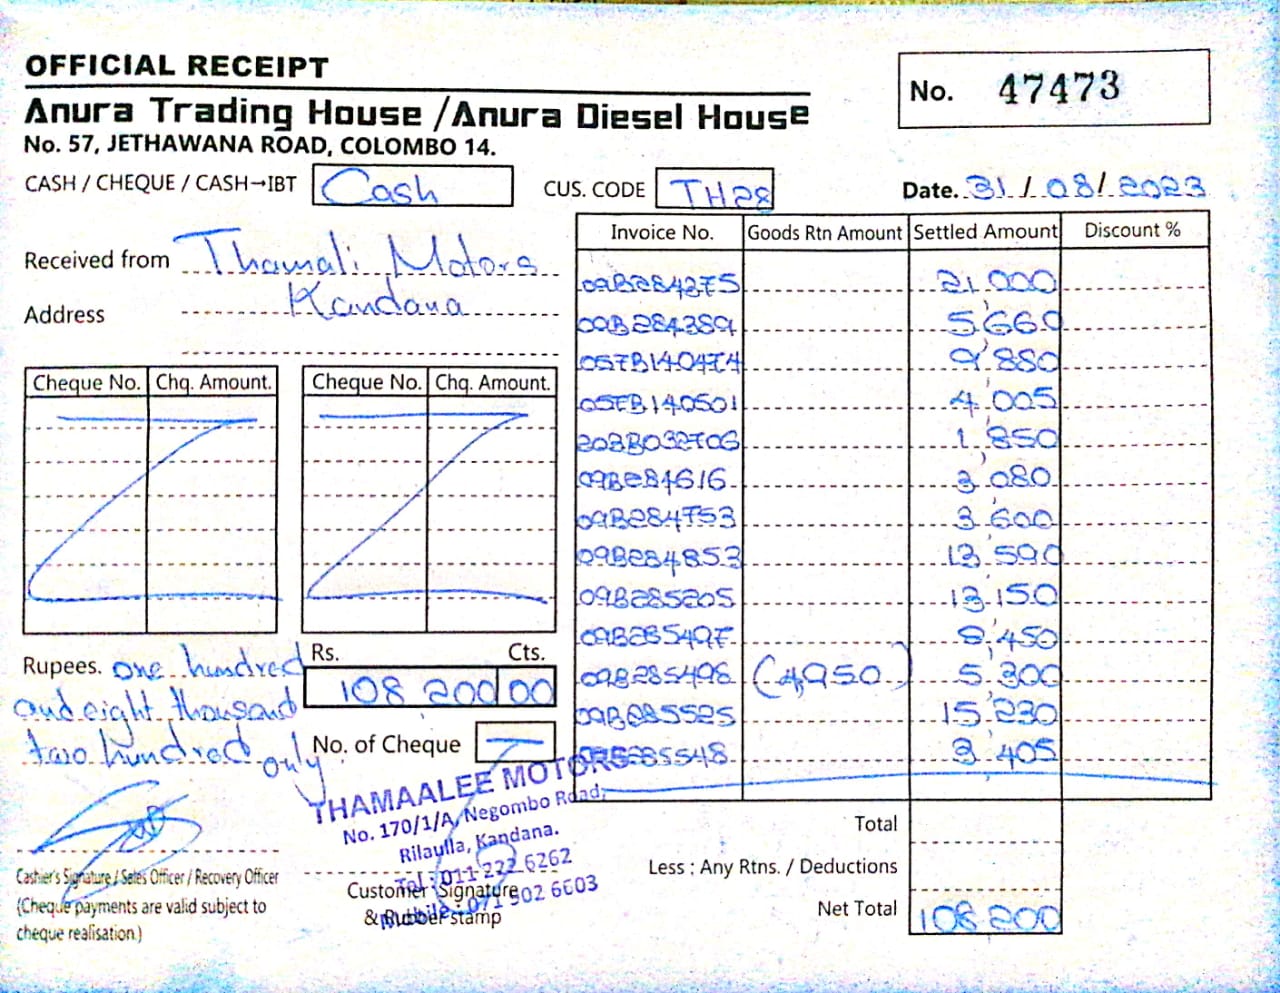 OFFICIAL RECEIPT
No. 47473
Anura Trading House / Anura Diesel House
No. 57, JETHAWANA ROAD, COLOMBO 14.
CASH / CHEQUE / CASH→IBT Cash CUS. CODE TH28 Date. 31/08/2023
Received from Thamali Motors
Address Kandana
Invoice No. Goods Rtn Amount Settled Amount Discount %
09B284275 21,000
09B284389 5,660
057B140474 9,880
057B140501 4,005
203B032706 1,850
09B284616 3,080
09B284753 3,600
09B284853 13,590
09B285205 13,150
09B285497 9,450
09B285498 (4,950) 5,300
09B285525 15,230
285548 3,405
Cheque No. Chq. Amount. Cheque No. Chq. Amount.
Rupees. one hundred and eight thousand two hundred only
Rs. Cts.
108 200 00
No. of Cheque
THAMAALEE MOTORS
No. 170/1/A, Negombo Road,
Rilaulla, Kandana.
Tel : 011 222 6262
Mobile : 071 502 6603
Cashier's Signature / Sales Officer / Recovery Officer
(Cheque payments are valid subject to
cheque realisation.)
Customer Signature
& Rubber stamp
Total
Less : Any Rtns. / Deductions
Net Total 108 200